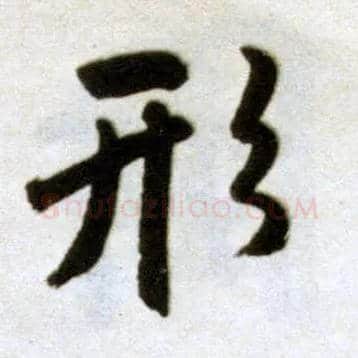 形
shufaziliao.COM